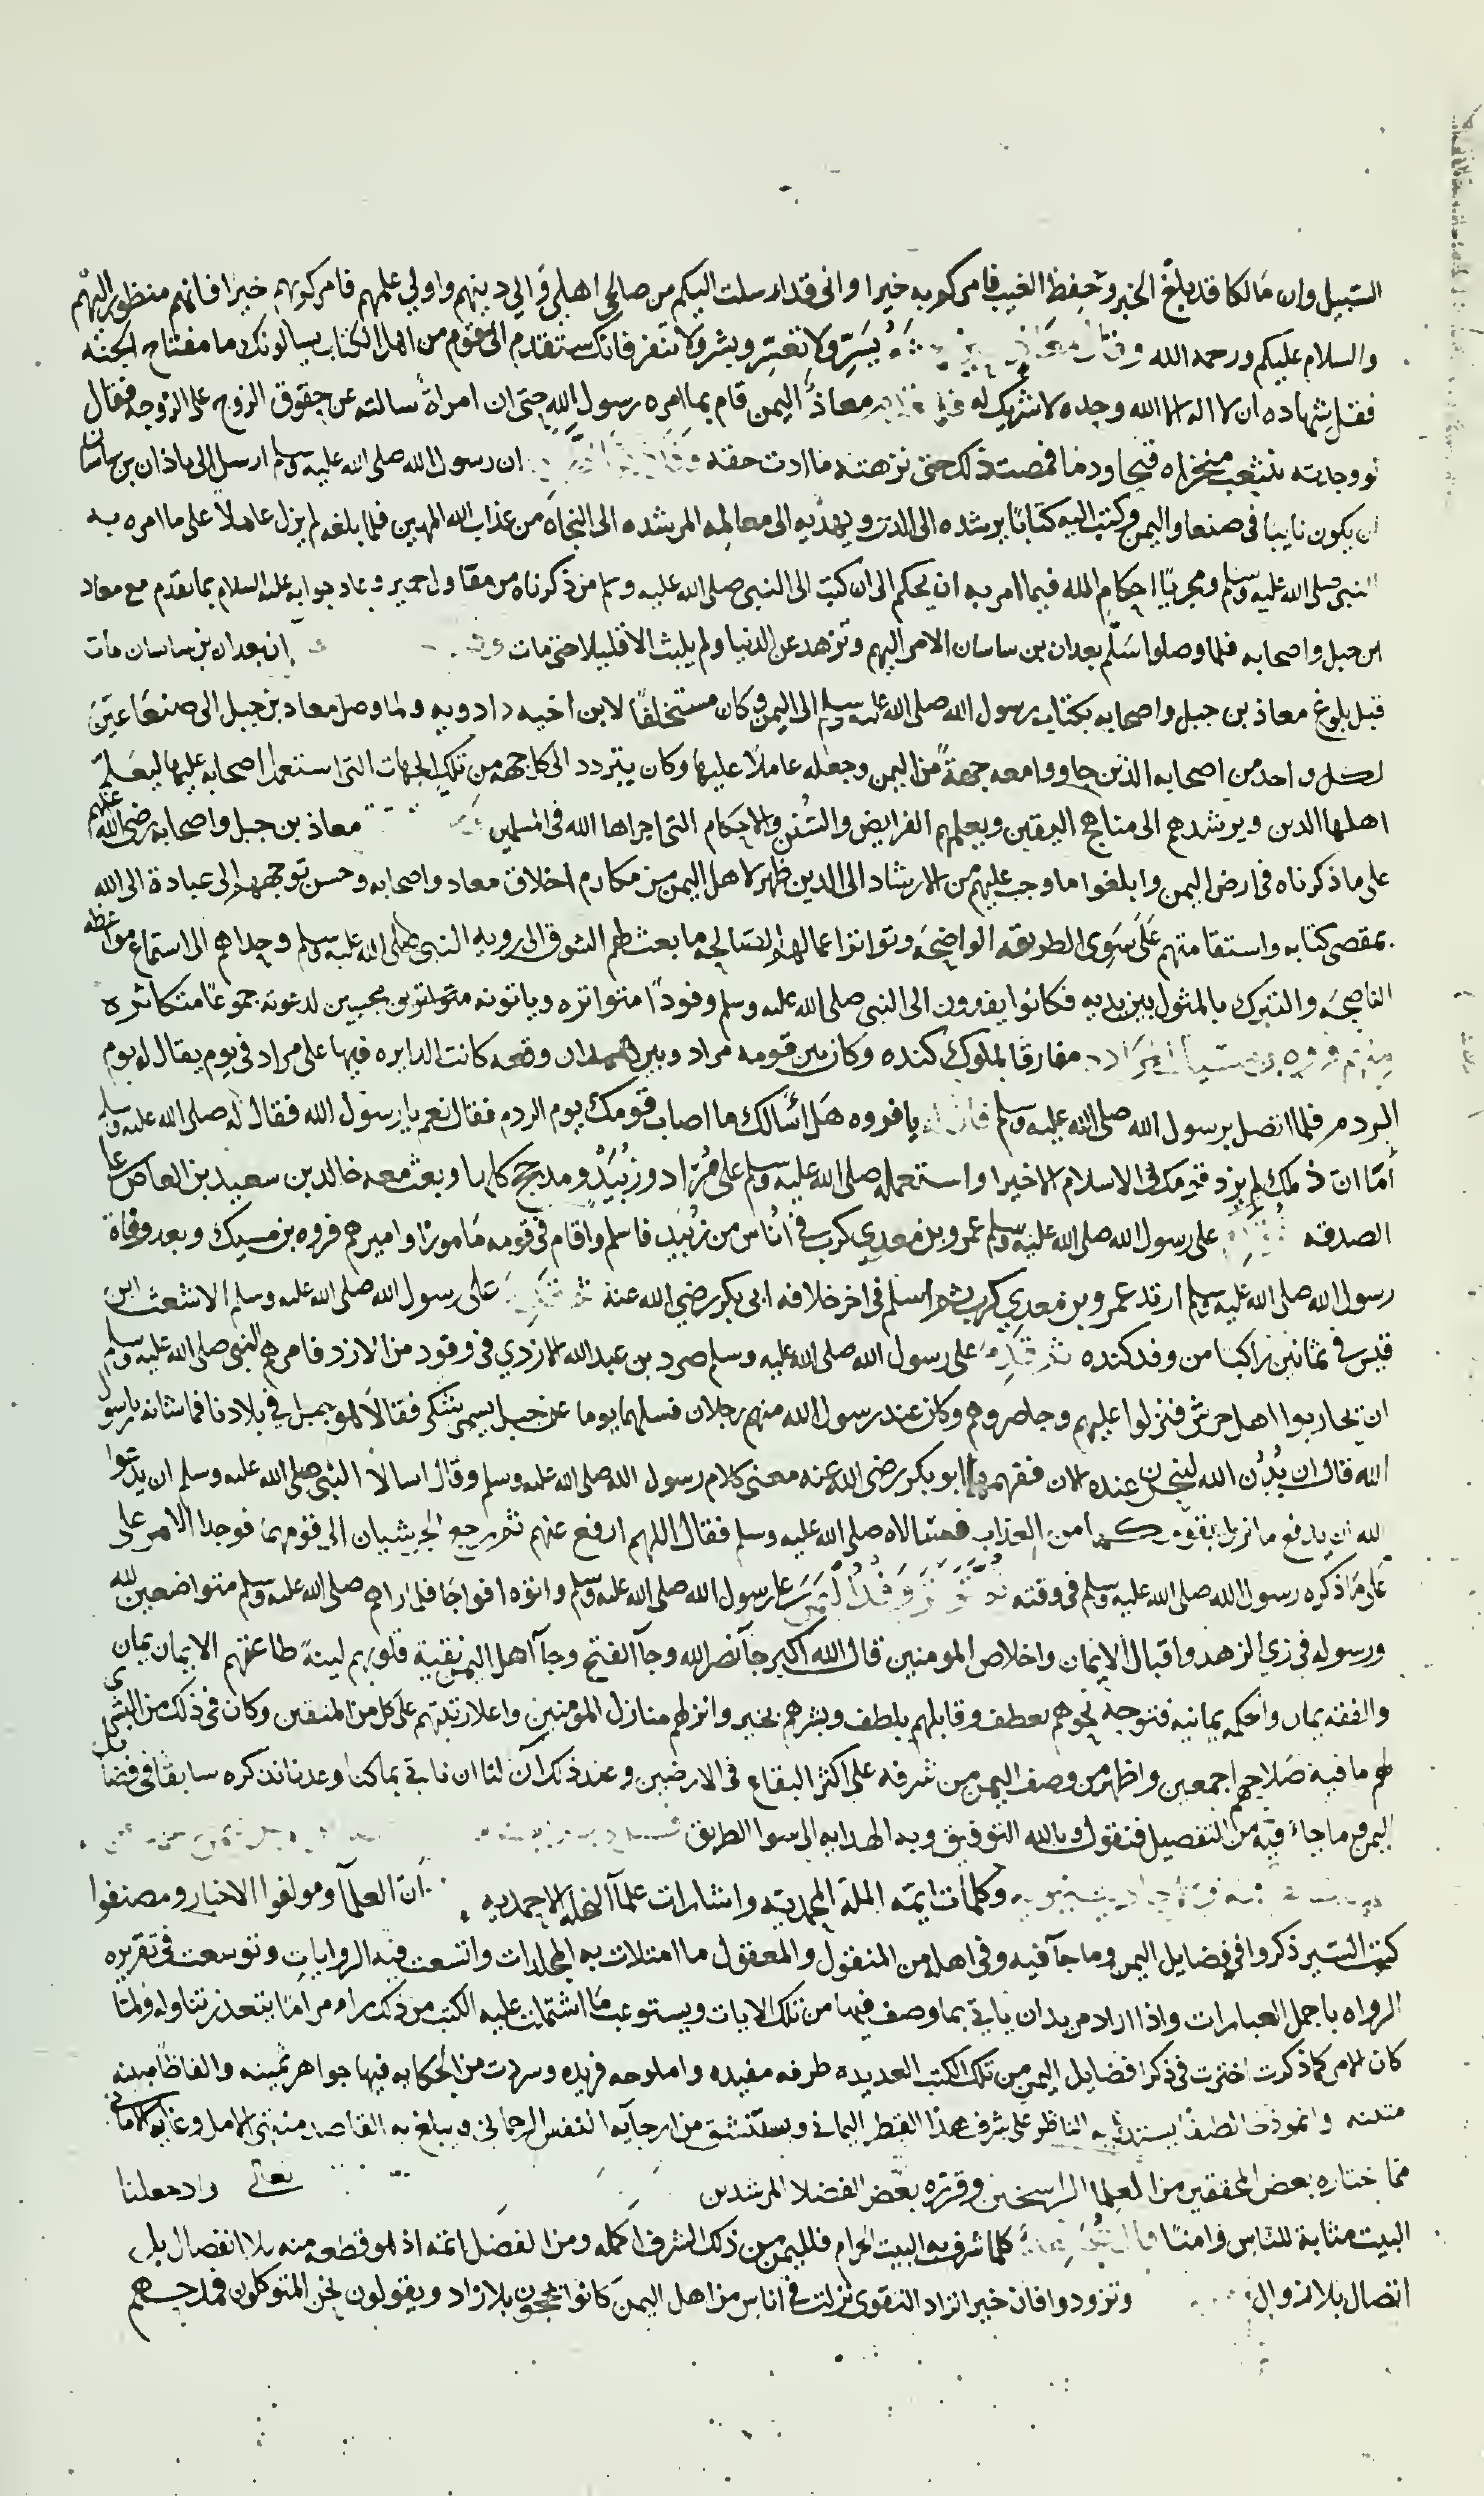 السبيل وان مالكا قد بلغ الخبر وحفظ الغيب فامركم به خيرا وانى قد ارسلت اليكم من صالحى اهلى واولي دينهم واولي علمهم فامركم بهم خيرا فانهم منظور اليهم
والسلام عليكم ورحمه الله يَسّر ولا تعسّر وبشر ولا تنفر فانك ستقدم الى قوم من اهل الكتاب يسالونك ما مفتاح الجنه
فقل شهاده ان لا اله الا الله وحده لا شريك له معاذ اليمن قام بما امره رسول الله حتى ان امراة سالته عن حقوق الزوج على الزوجه فقال
لو وجدته ينثعب منخراه قيحا ودما فمصت ذلك حتى نزهته ما ادت حقه ان رسول الله صلى الله عليه وسلم ارسل الى باذان بن ساسان
ان يكون نايبا فى صنعا واليمن وكتب اليه كتابًا يرشده الى الدين ويهديه الى معالمه المرشده الى النجاه من عذاب الله المهين فلما بلغه لم يزل عاملا على ما امره به
النبي صلى الله عليه وسلم ومجريًا احكام الله فيما امر به ان يحكم الى ان كتب الى النبى صلى الله عليه وسلم من ذكرناه من مقاول حمير وعاد جوابه عليه السلام بما تقدم مع معاد
ابن جبل واصحابه فلما وصلوا سَلّم بعدان بن ساسان الامر اليهم وتزهد عن الدنيا ولم يلبث الا قليلا حتى مات ان بعدان بن ساسان مات
قبل بلوغ معاذ بن جبل واصحابه بكتاب رسول الله صلى الله عليه وسلم الى اليمن وكان مستخلفًا لابن اخيه دادويه ولما وصل معاد بن جبل الى صنعا عيّن
لكل واحد من اصحابه الذين جاووا معه جهةً من اليمن وجعله عاملًا عليها وكان يتردد الى كل جهه من تلك الجهات التى استعمل اصحابه عليها ليعلم
اهلها الدين ويرشدهم الى مناهج اليقين ويعلمهم الفرايض والسُنن والاحكام التى اجراها الله فى المسلمين معاذ بن جبل واصحابه رضى الله عنهم
على ما ذكرناه فى ارض اليمن وابلغوا ما وجب عليهم من الارشاد الى الدين ظهر لاهل اليمن من مكارم اخلاق معاد واصحابه وحسن توجههم الى عبادة الى الله
بمقصى كتابه واستقامتهم على سَوِى الطريقه الواضحه وتواتر اعمالهم الصالحه ما بعث لهم الشوق الى رويه النبى صلى الله عليه وسلم وحداهم الى استماع مواعظه
الناصحه والتبرك بالمثول بين يديه فكانوا يفدون الى النبى صلى الله عليه وسلم وفودًا متواتره وياتونه متوالين مجيبين لدعوته جموعًا متكاثره
مفارقا لملوك كنده وكان بين قومه مراد وبين همدان وقعه كانت الدايره فيها على مراد فى يوم يقال له يوم
الردم فلما اتصل برسول الله صلى الله عليه وسلم يا فروه هَل اسَالك ما اصاب قومك يوم الردم فقال نعم يا رسول الله فقال له صلى الله عليه وسلم
أمّا ان ذلك لم يزد قومك فى الاسلام الا خيرا واستعمله صلى الله عليه وسلم على مُرَاد وزبَيْد ومدحج كلها وبعث معه خالد بن سعيد بن العاص على
الصدقه على رسول الله صلى الله عليه وسلم عمرو بن معدي كرب فى اناس من زبَيد فاسلم واقام فى قومه مَامورًا واميرهم فروه بن مسيك وبعد وفاة
رسول الله صلى الله عليه وسلم ارتد عمرو بن معدي كرب ثم اسلم فى اخر خلافه ابى بكر رضى الله عنه على رسول الله صلى الله عليه وسلم الاشعث ابن
قيس فى ثمانين راكبا من وفد كنده على رسول الله صلى الله عليه وسلم صرد بن عبد الله الازدي فى وفود من الازد فامرهم النبى صلى الله عليه وسلم
ان يحاربوا اهل جرش فنزلوا عليهم وحاصروهم وكان عند رسول الله منهم رجلان فسالهما يوما عن جبل يسمى شكر فقالا لهو جبل فى بلادنا فما شانه يا رسول
الله قال ان بُدْن الله لتنحرن عنده الان ففهمهما ابو بكر رضى الله عنه معنى كلام رسول الله صلى الله عليه وسلم وقال اسالا النبى صلى الله عليه وسلم ان يدعوا
لله ان يدفع ما نزل بقومكما من العذاب فسالاه صلى الله عليه وسلم فقال اللهم ارفع عنهم ثم رجع الجرشيان الى قومهما فوجدا الامر على
على ما ذكره رسول الله صلى الله عليه وسلم فى وقته على رسول الله صلى الله عليه وسلم واتوه افواجًا فلما راهم صلى الله عليه وسلم متواضعين لله
ورسوله فى زي الزهد واقبال الايمان واخلاص المومنين قال الله اكبر جآ نصر الله وجآ الفتح وجآ اهل اليمن نقية قلوبهم لينة طاعتهم الايمان يمان
والفقه يمان والحكمه يمانيه فتوجه نحوهم بعطف وقابلهم بلطف وبشرهم بخير وانزلهم منازل المومنين واعلا رتبتهم على كل من المتقين وكان فى ذلك من البشرى
لهم ما فيه صَلاحهم اجمعين واظهر من وصف اليمن من شرفه على اكثر البقاع فى الارضين وعند ذلك آن لنا ان ناتى بما كنا وعدنا نذكره سابقًا فى فضايل
اليمن وما جاء فيه من التفصيل فنقول وبالله التوفيق وبه الهدايه الى سوا الطريق
وكلمات ايمّه الملة المحمديّه واشارات علمآ النحله الاحمديه ان العلمآ ومولفوا الاخبار ومصنفوا
كتب السير ذكروا فى فضايل اليمن وما جآ فيه وفى اهله من المنقول والمعقول ما امتلات به المجلدات واتسعت فيه الروايات وتوسعت فى تقريره
الرواه باجمل العبارات واذا اراد مريد ان ياتى بما وصف فيها من تلك الايات ويستوعب ما اشتملت عليه الكتب من ذلك رام مرامًا يتعذر تناوله ولمّا
كان الامر كما ذكرت اخترت فى ذكر فضايل اليمن من تلك الكتب العديده طرفه مفيده واملوحه فريده وسردت من الحكايه فيها جواهر ثمينه والفاظًا مبينه
متينه وانموذجًا لطيفًا يستدل به الناظر على شرف هذا القطر اليمانى ويستنشق من ارجآيه النفس الرحمانى ويبلغ به القاصد منتهى الامل وغايه الامانى
مما اختاره بعض المحققين من العلما الراسخين وقرره بعض الفضلا المرشدين تعالى واذ جعلنا
البيت مثابة للناس وامنًا كلما شرف به البيت الحرام فلليمن من ذلك الشرف اكمله ومن الفضل اتمه اذ هو قطعه منه بلا انفصال بل
اتصال بلا زوال وتزودوا فان خير الزاد التقوى نزلت فى اناس من اهل اليمن كانوا يحجون بلا زاد ويقولون نحن المتوكلون فمدحهم